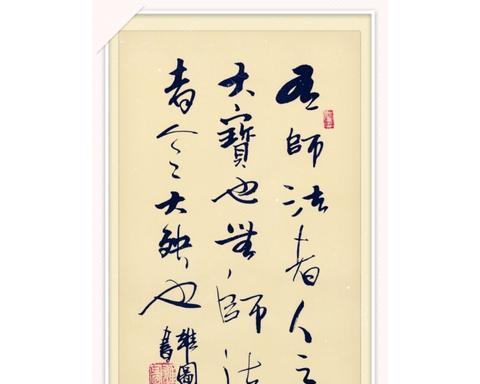 有師法者人之
大寶也無師法
者人之大殃也
雄圖
書